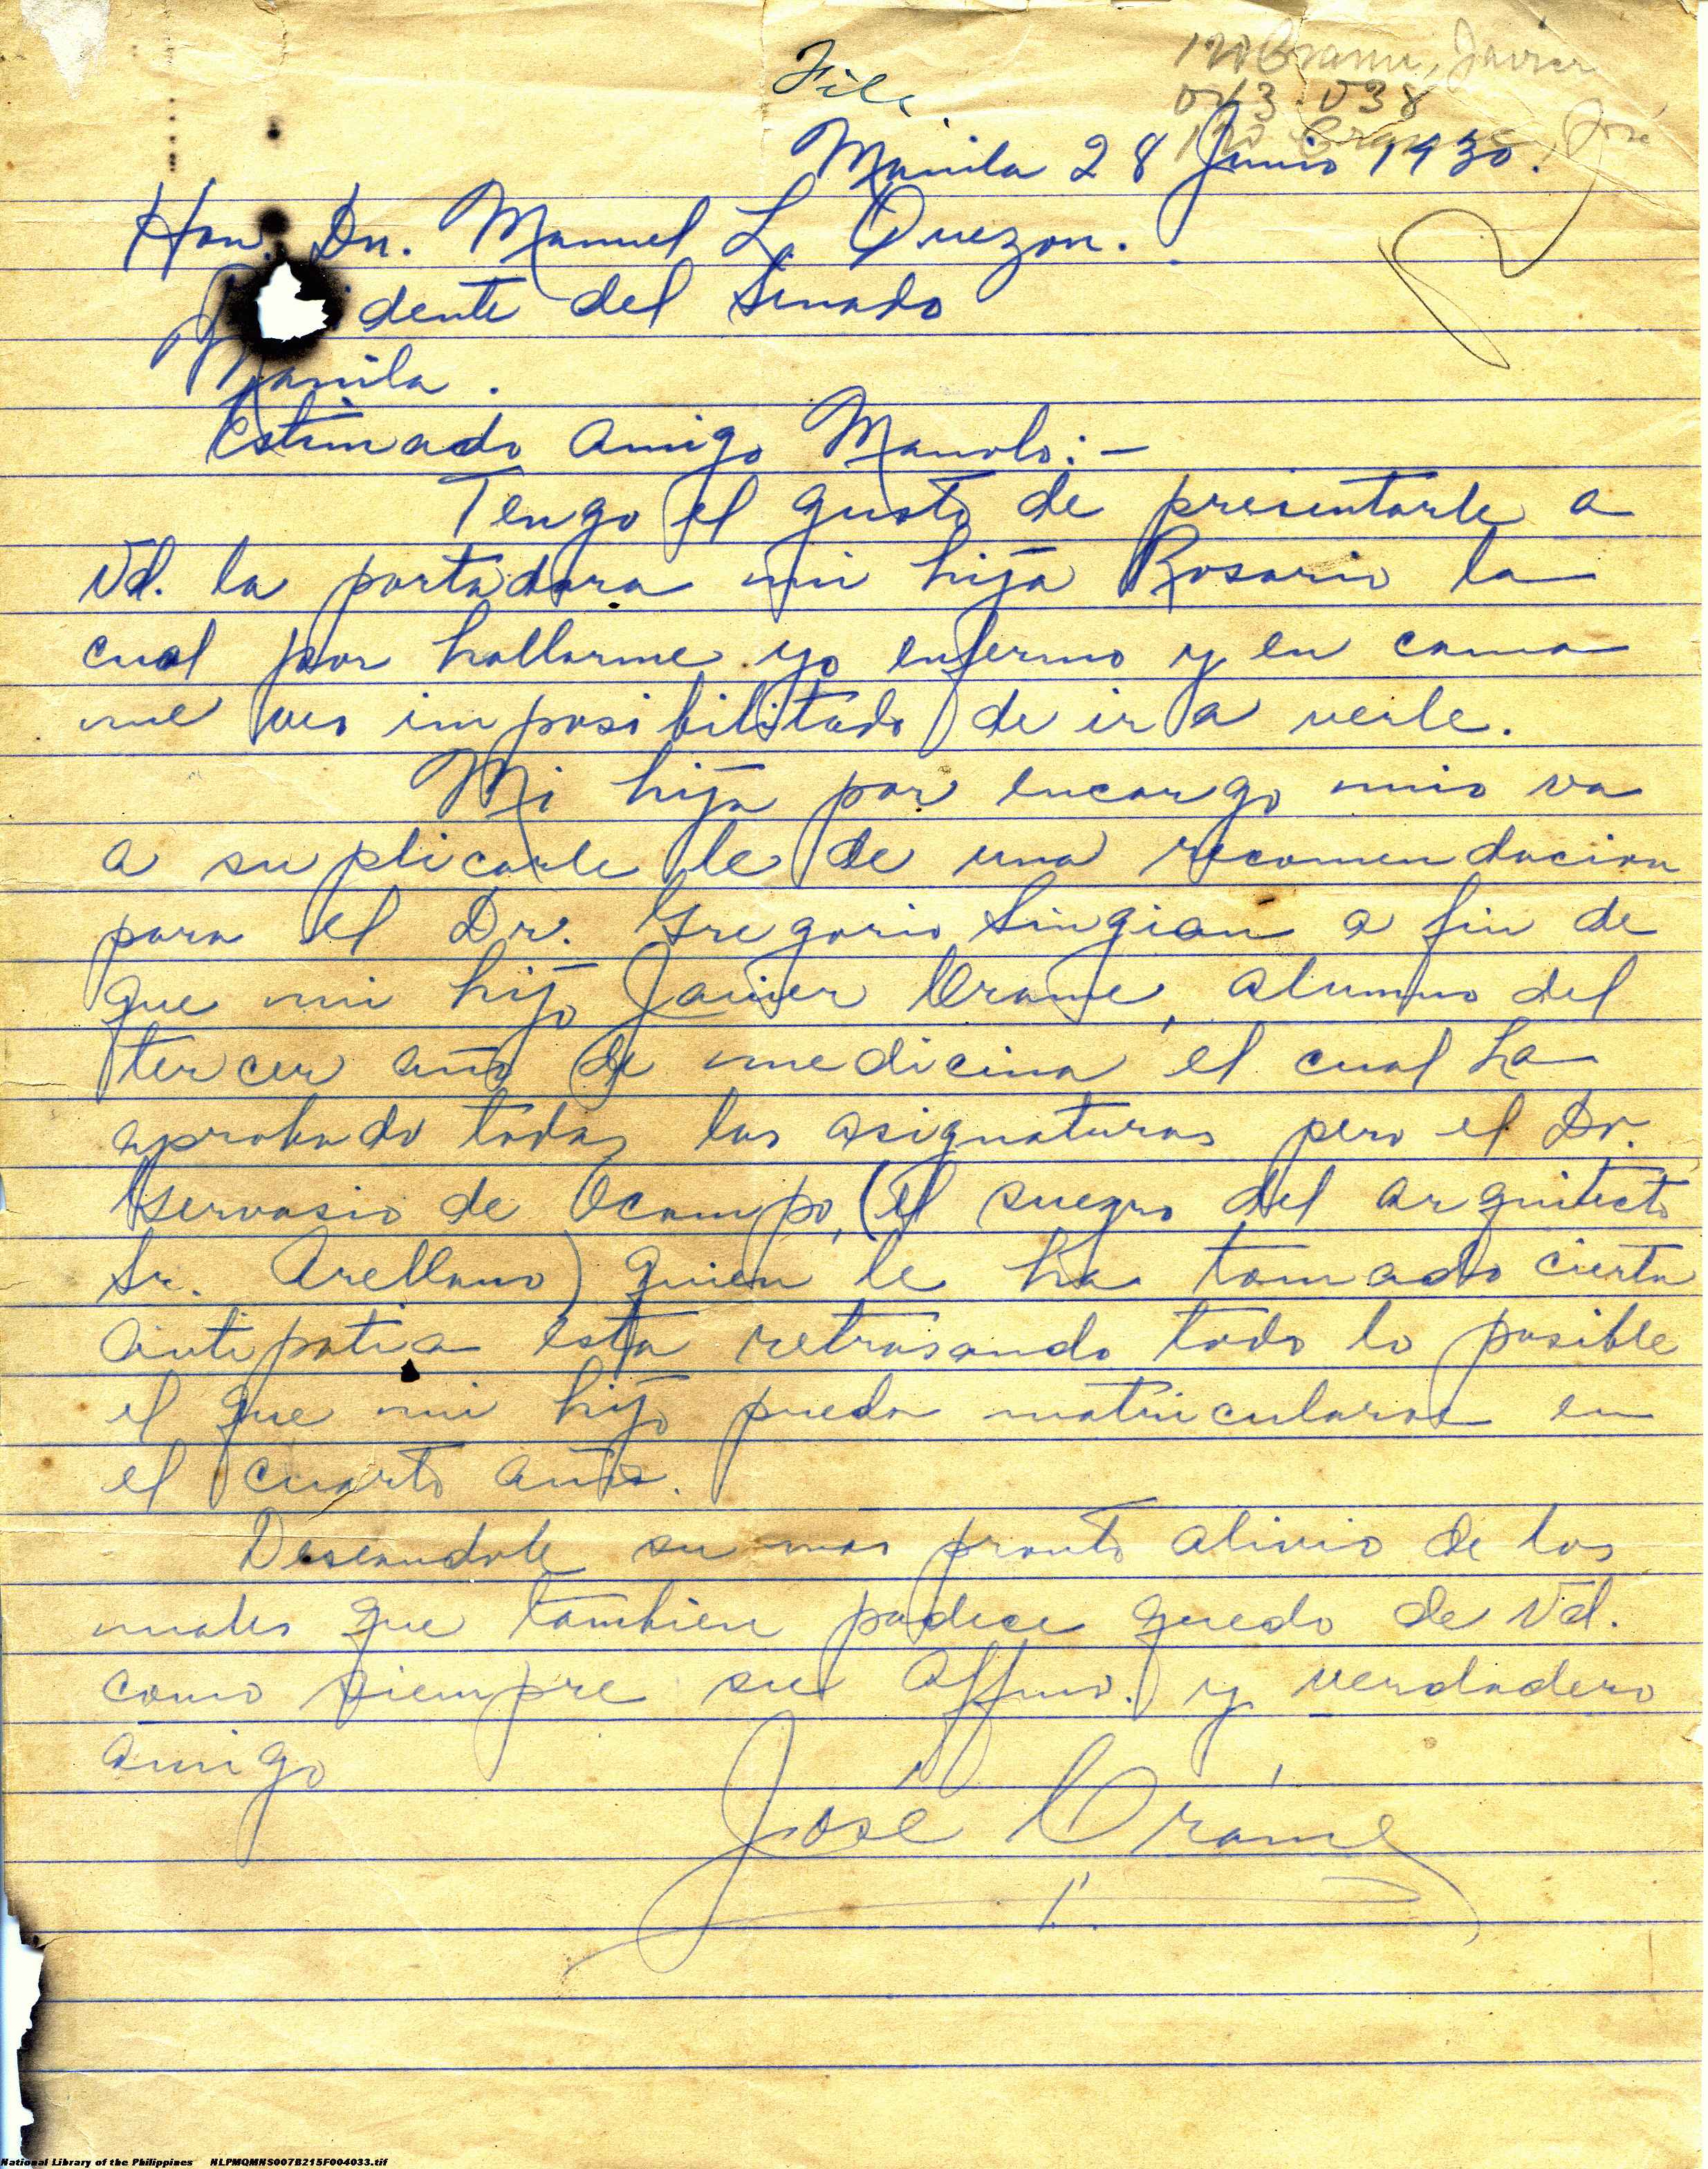 File
Crame, Javier
José
Manila 28 Junio 1930.
Hon. Dn. Manuel L. Quezon.
dente del Senado
Manila.
Estimado amigo Manolo:-
Tengo el gusto de presentarle a
Vd. la portadora mi hija Rosario la
cual por hallarme yo enfermo y en cama
me veo imposibilitado de ir a verle.
Mi hija por encargo mio va
a suplicarle le de una recomendacion
para el Dr. Gregorio Singian a fin de
que mi hijo Javier Crame, alumno del
tercer año de medicina el cual ha
aprobado todas las asignaturas pero el Dr.
Gervasio de Ocampo, (el suegro del arquitecto
Sr. Arellano) quien le ha tomado cierta
antipatia esta retrasando todo lo posible
el que mi hijo pueda matricularse en
el cuarto año.
Deseandole su mas pronto alivio de los
males que tambien padece quedo de Vd.
como siempre su affmo. y verdadero
amigo
José Crame
National Library of the Philippines NLPMQMNS007B215F004033.tif